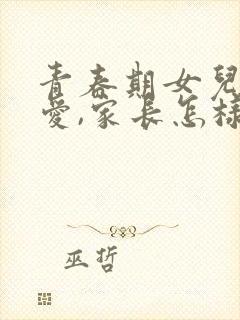 青春期女兒
愛,家長怎樣
巫哲